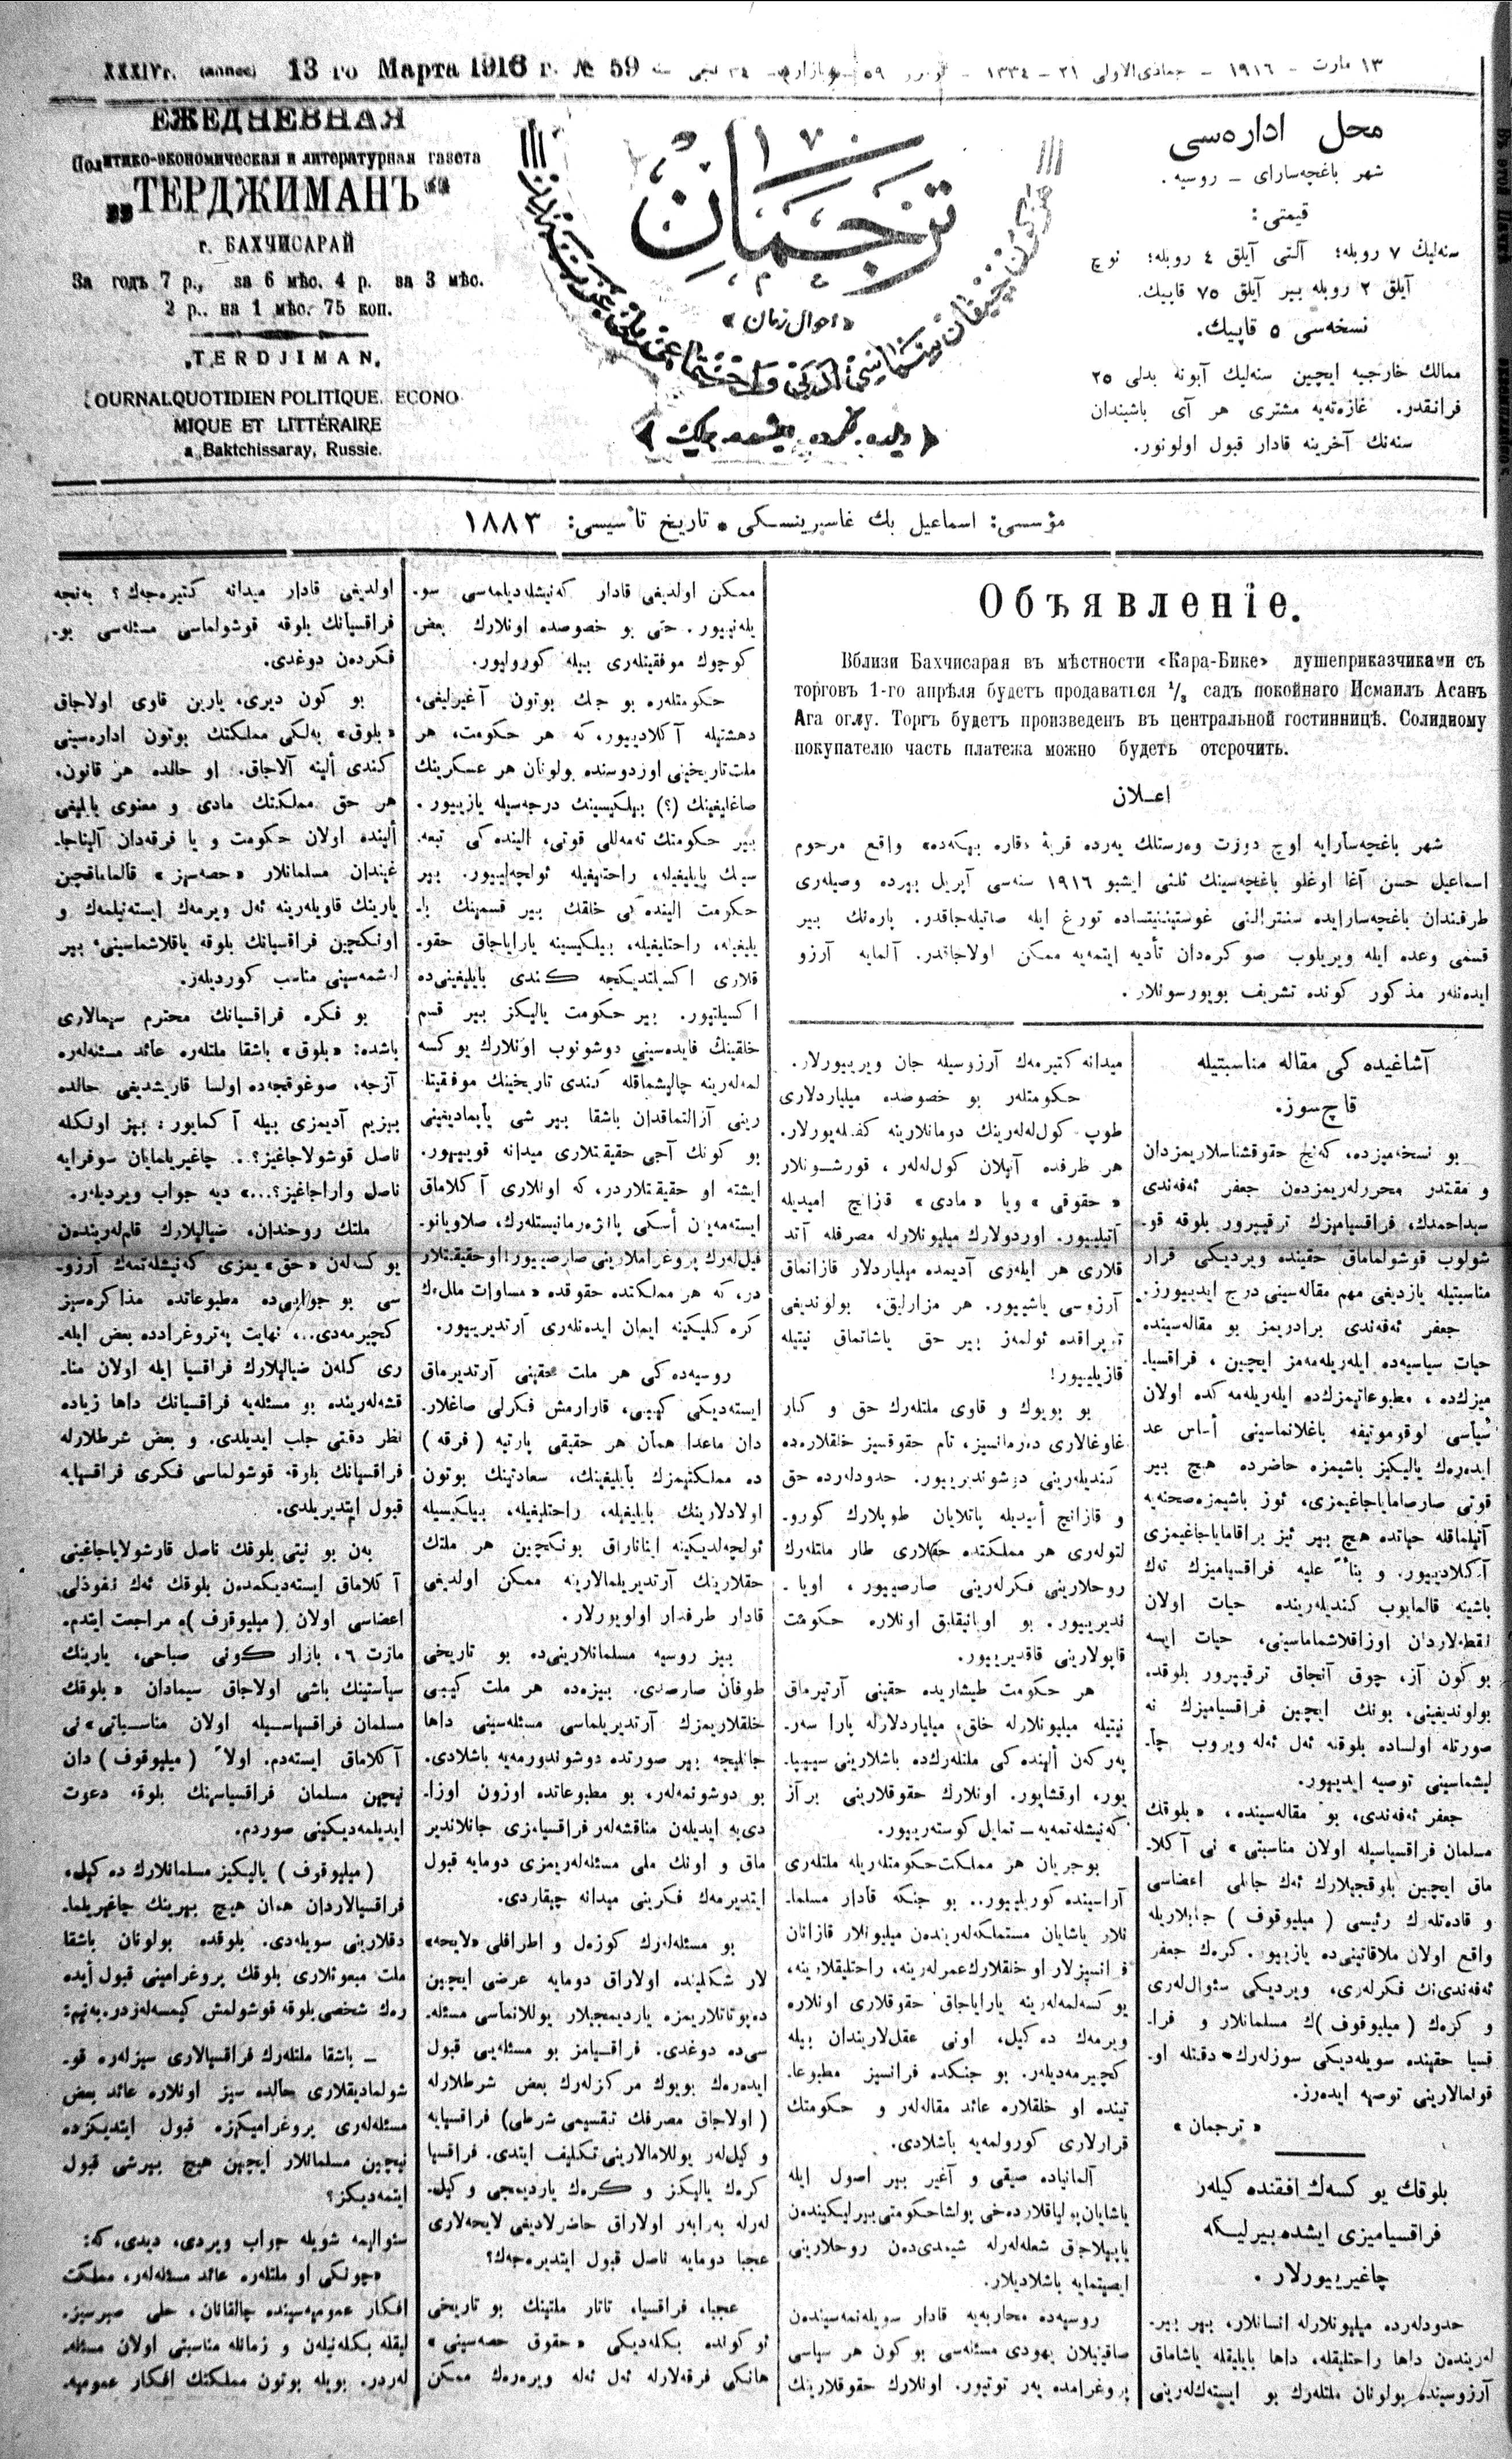 XXXIV г. (année) 13 го Марта 1916 г. № 59
١٣ مارت – ١٩١٦ – جمادی‌الاولی ٢١ – ١٣٣٤
ЕЖЕДНЕВНАЯ
Политико-экономическая и литературная газета
„ТЕРДЖИМАНЪ“
г. БАХЧИСАРАЙ
За годъ 7 р., за 6 мѣс. 4 р. за 3 мѣс.
2 р.. на 1 мѣс. 75 коп.
„TERDJIMAN„
JOURNAL QUOTIDIEN POLITIQUE, ECONO
MIQUE ET LITTÉRAIRE
a Baktchissaray, Russie.
ترجمان
«احوال زمان»
محل اداره‌سی
شهر باغچه‌سارای – روسیه.
قیمتی:
سنه‌لیك ٧ روبله؛ آلتی آیلق ٤ روبله؛ ئوچ
آیلق ٢ روبله بیر آیلق ٧٥ قاپیك.
نسخه‌سی ٥ قاپیك.
ممالك خارجیه ایچین سنه‌لیك آبونه بدلی ٢٥
فرانقدر. غازه‌ته‌یه مشتری هر آی باشیندان
سنه‌نك آخرینه قادار قبول اولونور.
مؤسسی: اسماعیل بك غاسپرینسكی • تاریخ تأسیسی: ١٨٨٣
Объявленіе.
Вблизи Бахчисарая въ мѣстности «Кара-Бике» душеприказчиками съ
торговъ 1-го апрѣля будетъ продаваться ⅓ садъ покойнаго Исмаилъ Асанъ
Ага оглу. Торгъ будетъ произведенъ въ центральной гостинницѣ. Солидному
покупателю часть платежа можно будетъ отсрочить.
اعـلان
شهر باغچه‌سارایه اوچ دورت وه‌رستلك یه‌رده قریهٔ «قاره بیكه‌ده» واقع مرحوم
اسماعیل حسن آغا اوغلو باغچه‌سینك ثلثی ایشبو ١٩١٦ سنه‌سی آپریل بیرده وصیله‌ری
طرفندان باغچه‌سارایده سنترالنی غوستیننیتساده تورغ ایله صاتیله‌جاقدر. پاره‌نك بیر
قسمی وعده ایله ویریلوب صوكره‌دان تأدیه ایتمه‌یه ممكن اولاجاقدر. آلمایه آرزو
ایده‌نله‌ر مذكور كونده تشریف بویورسونلار.
آشاغیده كی مقاله مناسبتیله
قاچ سوز.
بو نسخه‌میزده، كه‌نج حقوقشناسلاریمزدان
و مقتدر محررله‌ریمزدن جعفر ئه‌فه‌ندی
سیداحمدك، فراقسیامیزك ترقیپرور بلوقه قو-
شولوب قوشولماماق حقینده ویردیكی قرار
مناسبتیله یازدیغی مهم مقاله‌سینی درج ایدییورز.
جعفر ئه‌فه‌ندی برادریمز بو مقاله‌سینده
حیات سیاسیه‌ده ایله‌ریله‌مه‌مز ایچین، فراقسیا-
میزكده، مطبوعاتیمزكده ایله‌ریله‌مه كده اولان
باشینه قالمایوب كندیله‌رینده حیات اولان
نقطه‌لاردان اوزاقلاشماماسینی، حیات ایسه
بو كون آز، چوق آنجاق ترقیپرور بلوقده
بولوندیغینی، بونك ایچین فراقسیامیزك نه
صورتله اولساده بلوقنه ئه‌ل ئه‌له ویروب چا-
لیشماسینی توصیه ایدییور.
جعفر ئه‌فه‌ندی، بو مقاله‌سینده، «بلوقك
مسلمان فراقسیاسیله اولان مناسبتی» نی آكلا-
ماق ایچین بلوقچیلارك ئه‌ك جانلی اعضاسی
و قاده‌تله‌رك رئیسی (میلیوقوف) جنابلاریله
واقع اولان ملاقاتینی‌ده یازییور. كرك جعفر
ئه‌فه‌ندی‌نك فكرله‌ری، ویردیكی سئوال‌له‌ری
و كرك (میلیوقوف)ك مسلمانلار و فرا-
قسیا حقینده سویله‌دیكی سوزله‌رك دقتله او-
قولمالارینی توصیه ایده‌رز.
«ترجمان»
بلوقك یو كسه‌ك افقنده كیله‌ر
فراقسیامیزی ایشده بیرلیكه
چاغیرییورلار.
حدودله‌رده میلیونلارله انسانلار، بیر بیر-
له‌ریندن داها راحتلیقله، داها بایلیقله یاشاماق
آرزوسینده بولونان ملتله‌رك بو ایسته‌كله‌رینی
میدانه كتیرمه‌ك آرزوسیله جان ویرییورلار.
حكومتله‌ر بو خصوصده میلیاردلاری
طوپ كول‌له‌له‌رینك دومانلارینه
هر طرفده آتیلان كول‌له‌لر، قورشـونلار
«حقوقی» ویا «مادی» قزانچ امیدیله
آتیلییور. اوردولارك میلیونلارله مصرفله آتد
قلاری هر ایله‌ری آدیمده میلیاردلار قازانماق
آرزوسی یاشییور. هر مزارلیق، بولوندیغی
توپراقده ئولمه‌ز بیر حق یاشاتماق نیتیله
قازیلییور!
بو بویوك و قاوی ملتله‌رك حق و كار
كندیله‌رینی دوشوندیرییور. حدودله‌رده حق
و قازانچ أمیدیله پاتلایان طوپلارك كورو-
لتوله‌ری هر مملكتده حقلاری طار ملتله‌رك
روحلارینی فكرله‌رینی صارصییور، اویا-
ندیرییور. بو اویانیقلیق اونلاره حكومت
قاپولارینی قاقدیرییور.
هر حكومت طیشاریده حقینی آرتیرماق
نیتیله میلیونلارله خلق، میلیاردلارله پارا سه‌ر-
په‌ركه‌ن ألینده كی ملتله‌رك‌ده باشلارینی سیپیا-
یور، اوقشایور. اونلارك حقوقلارینی بر آز
كه‌نیشله‌تمه‌یه – تمایل كوسته‌رییور.
بو جریان هر مملكت حكومتله‌ریله ملتله‌ری
آراسینده كوریلییور.. بو جنكه قادار مسلما-
نلار یاشایان مستملكه‌له‌رینده‌ن میلیونلار قازانان
یو كسه‌لمه‌له‌رینه یارایاجاق حقوقلاری اونلاره
ویرمه‌ك ده كیل، اونی عقل‌لاریندان بیله
كچیرمه‌دیله‌ر. بو جنكده فرانسیز مطبوعا-
تینده او خلقلاره عائد مقاله‌له‌ر و حكومتك
قرارلاری كورولمه‌یه باشلادی.
آلمانیاده صیقی و آغیر بیر اصول ایله
یاپیلاجاق شعله‌له‌رله شیمدی‌دن روحلارینی
ایصیتمایه باشلادیلار.
روسیه‌ده محاربه‌یه قادار سویله‌نمه‌سیندن
صاقینیلان یهودی مسئله‌سی بو كون هر سیاسی
پروغرامده یه‌ر توتیور. اونلارك حقوقلارینك
ممكن اولدیغی قادار كه‌نیشله‌دیلمه‌سی سو-
یله‌نییور. حتی بو خصوصده اونلارك بعض
كوچوك موفقیتله‌ری بیله كورولیور.
حكومتله‌ره بو جنك بوتون آغیرلیغی،
دهشتیله آكلادییور، كه هر حكومت، هر
ملت تاریخینی اوزدوسنده بولونان هر عسكرینك
صاغلیغینك (؟) بیلكیسینك درجه‌سیله یازییور.
بیر حكومتك تمه‌للی قوتی، الینده كی تبعه-
سینك بایلیغیله، راحتلیغیله ئولچه‌لییور. بیر
حكومت الینده كی خلقك بیر قسمینك با-
یلیغیله، راحتلیغیله، بیلكیسینه یارایاجاق حقو-
قلاری اكسیلتدیكجه كندی بایلیغینی‌ده
اكسیلتیور. بیر حكومت یالیكز بیر قسم
خلقینك فایده‌سینی دوشونوب اونلارك یو كسه
لمه‌له‌رینه چالیشماقله كندی تاریخینك موفقیتلا-
رینی آزالتماقدان باشقا بیر شی یاپمادیغینی
بو كونك آجی حقیقتلاری میدانه قویییور.
ایشته او حقیقتلاردر، كه اونلاری آكلاماق
در، كه هر مملكتده حقوقده «مساوات ملل»ك
كره كلیكینه ایمان ایده‌نله‌ری آرتدیرییور.
روسیه‌ده كی هر ملت حقینی آرتدیرماق
ایسته‌دیكی كیبی، قارارمش فكرلی صاغلار-
دان ماعدا همان هر حقیقی پارتیه (فرقه)
ده مملكتیمزك بایلیغینك، سعادتینك بوتون
اولادلارینك بایلیغیله، راحتلیغیله، بیلكیسیله
ئولچه‌لدیكینه ایناناراق بونكچین هر ملتك
حقلارینك آرتدیریلمالارینه ممكن اولدیغی
قادار طرفدار اولویورلار.
بیز روسیه مسلمانلارینی‌ده بو تاریخی
طوفان صارصدی. بیزه‌ده هر ملت كیبی
خلقلاریمزك آرتدیریلماسی مسئله‌سینی داها
جانلیجه بیر صورتده دوشوندورمه‌یه باشلادی.
بو دوشونمه‌له‌ر، بو مطبوعاتده اوزون اوزا-
دی‌یه ایدیله‌ن مناقشه‌له‌ر فراقسیامزی جانلاندیر
ماق و اونك ملی مسئله‌له‌ریمزی دومایه قبول
ایتدیرمه‌ك فكرینی میدانه چیقاردی.
بو مسئله‌له‌رك كوزه‌ل و اطرافلی «لایحه»
لار شكلینده اولاراق دومایه عرضی ایچین
ده‌پوتاتلاریمزه یاردیمچیلار یوللانماسی مسئله-
سی‌ده دوغدی. فراقسیامز بو مسئله‌یی قبول
ایده‌رك بویوك مركزله‌رك بعض شرطلارله
(اولاجاق مصرفك تقسیمی شرطی) فراقسیایه
و كیل‌له‌ر یوللامالارینی تكلیف ایتدی. فراقسیا
كرك یالیكز و كرك یاردیمجی و كیل-
له‌رله به‌رابه‌ر اولاراق حاضرلادیغی لایحه‌لاری
عجبا دومایه ناصل قبول ایتدیره‌جه‌ك؟
عجبا، فراقسیا، تاتار ملتینك بو تاریخی
كونده بكله‌دیكی «حقوق حصه‌سینی»
هانكی فرقه‌لارله ئه‌ل ئه‌له ویره‌ره‌ك ممكن
اولدیغی قادار میدانه كتیره‌جه‌ك؟ به‌نجه
فراقسیانك بلوقه قوشولماسی مسئله‌سی بو-
فكرده‌ن دوغدی.
بو كون دیری، یارین قاوی اولاجاق
«بلوق» به‌لكی مملكتك بوتون اداره‌سینی
كندی ألینه آلاجاق. او حالده هر قانون،
هر حق مملكتك مادی و معنوی بایلیغی
ألینده اولان حكومت و یا فرقه‌دان آلیناجا-
غیندان مسلمانلار «حصه‌سیز» قالماماقچین
یارینك قاویله‌رینه ئه‌ل ویرمه‌ك ایسته‌نیلمه‌ك و
اونكچین فراقسیانك بلوقه یاقلاشماسینی، بیر
له‌شمه‌سینی مناسب كوردیله‌ر.
بو فكره فراقسیانك محترم سیمالاری
باشده: «بلوق» باشقا ملتله‌ره عائد مسئله‌له‌ره
آزجه، صوغوقجه‌ده اولسا قاریشدیغی حالده
بیزیم آدیمزی بیله آكمایور؛ بیز اونكله
ناصل قوشولاجاغیز؟.. چاغیریلمایان سوفرایه
ناصل واراجاغیز؟...» دیه جواب ویردیله‌ر.
ملتك روحندان، ضیالیلارك قلم‌له‌رینده‌ن
یو كسه‌لن «حق»یمزی كه‌نیشله‌تمه‌ك آرزو-
سی بو جوابی‌ده مطبوعاتده مذاكره‌سیز
كچیرمه‌دی... نهایت په‌تروغرادده بعض ایله-
ری كله‌ن ضیالیلارك فراقسیا ایله اولان منا-
قشه‌له‌رینده بو مسئله‌یه فراقسیانك داها زیاده
نظر دقتی جلب ایدیلدی. و بعض شرطلارله
فراقسیانك بلوقه قوشولماسی فكری فراقسیایه
قبول ایتدیریلدی.
به‌ن بو نیتی بلوقك ناصل قارشولایاجاغینی
آكلاماق ایسته‌دیكمده‌ن بلوقك ئه‌ك نفوذلی
اعضاسی اولان (میلیوقوف)ه مراجعت ایتدم.
مارت ٦، بازار كونی صباحی، یارینك
سیاستینك باشی اولاجاق سیمادان «بلوقك
مسلمان فراقسیاسـیله اولان مناسـباتی»نی
آكلاماق ایسته‌دم. اولاً (میلیوقوف)دان
نیچین مسلمان فراقسیاسینك بلوقه دعوت
ایدیلمه‌دیكینی صوردم.
(میلیوقوف) یالیكیز مسلمانلارك ده كیل،
فراقسیالاردان همان هیچ بیرینك چاغیریلما-
دقلارینی سویله‌دی. بلوقده بولونان باشقا
ملت مبعوثلاری بلوقك پروغرامینی قبول ایده
ره‌ك شخصی بلوقه قوشولمش كیمسه‌له‌زدر. به‌نیم:
– باشقا ملتله‌رك فراقسیالاری سیزله‌ره قو-
شولمادیقلاری حالده سیز اونلاره عائد بعض
مسئله‌له‌ری پروغرامیكزه قبول ایتدیكزده
نیچین مسلمانلار ایچین هیچ بیرشی قبول
ایتمه‌دیكز؟
سئوالیمه شویله جواب ویردی، دیدی، كه:
«چونكی او ملتله‌ره عائد مسئله‌له‌ر، مملكت
افكار عمومیه‌سینده چالقانان، حلی صبرسیز-
لیقله بكله‌نیله‌ن و زمانله مناسبتی اولان مسئله-
له‌ردر. بویله بوتون مملكتك افكار عمومیه-